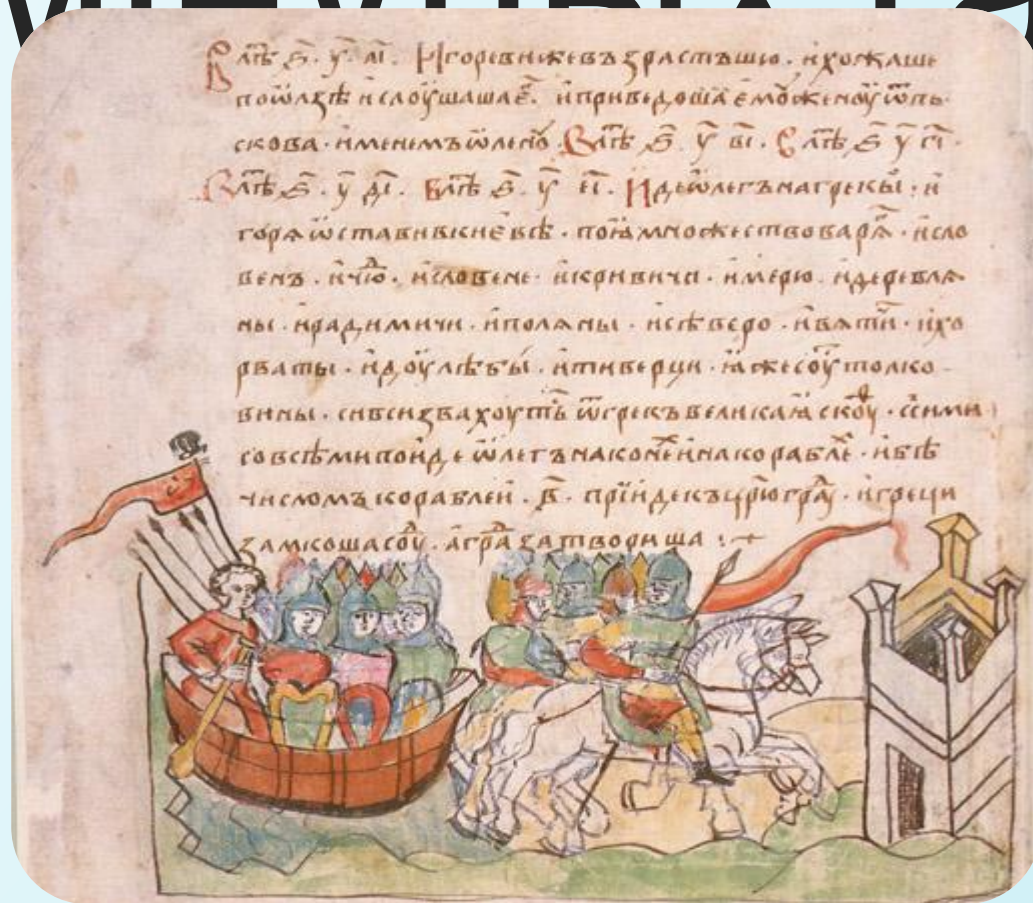 В лѣт҃ ҂ѕ҃. у҃. а҃і. Игореви же възрастъшю. и хожаше
по Ѡлзѣ и слоушаша е҃г. и приведоша ему женоу ѿ Пь
скова. именемъ Ѡлено. В лѣт҃ ҂ѕ҃. у҃. в҃і. В лѣт҃ ҂ѕ҃. у҃. г҃і.
В лѣт҃ ҂ѕ҃. у҃. д҃і. В лѣт҃ ҂ѕ҃. у҃. е҃і. Иде Ѡлегъ на грекы. и
горя ѡстави в Киевѣ. поя множество варѧ. и сло
венъ. и чю. и словене. и кривичи. и мерю. и деревлѧ
ны. и радимичи. и полѧны. и сѣверо. и вѧтичи. и хо
рваты. и доулѣбы. и тиверци. ꙗже соуть толко
вины. си вси звахоуть ѿ грекъ великаѧ скоуф. с сими
со всѣми поиде Ѡлегъ на коне и на корабле. и бѣ
числомъ кораблеи. в҃. прїиде къ ц҃рюграду. и греци
замкоша соуд. а град затвориша :·